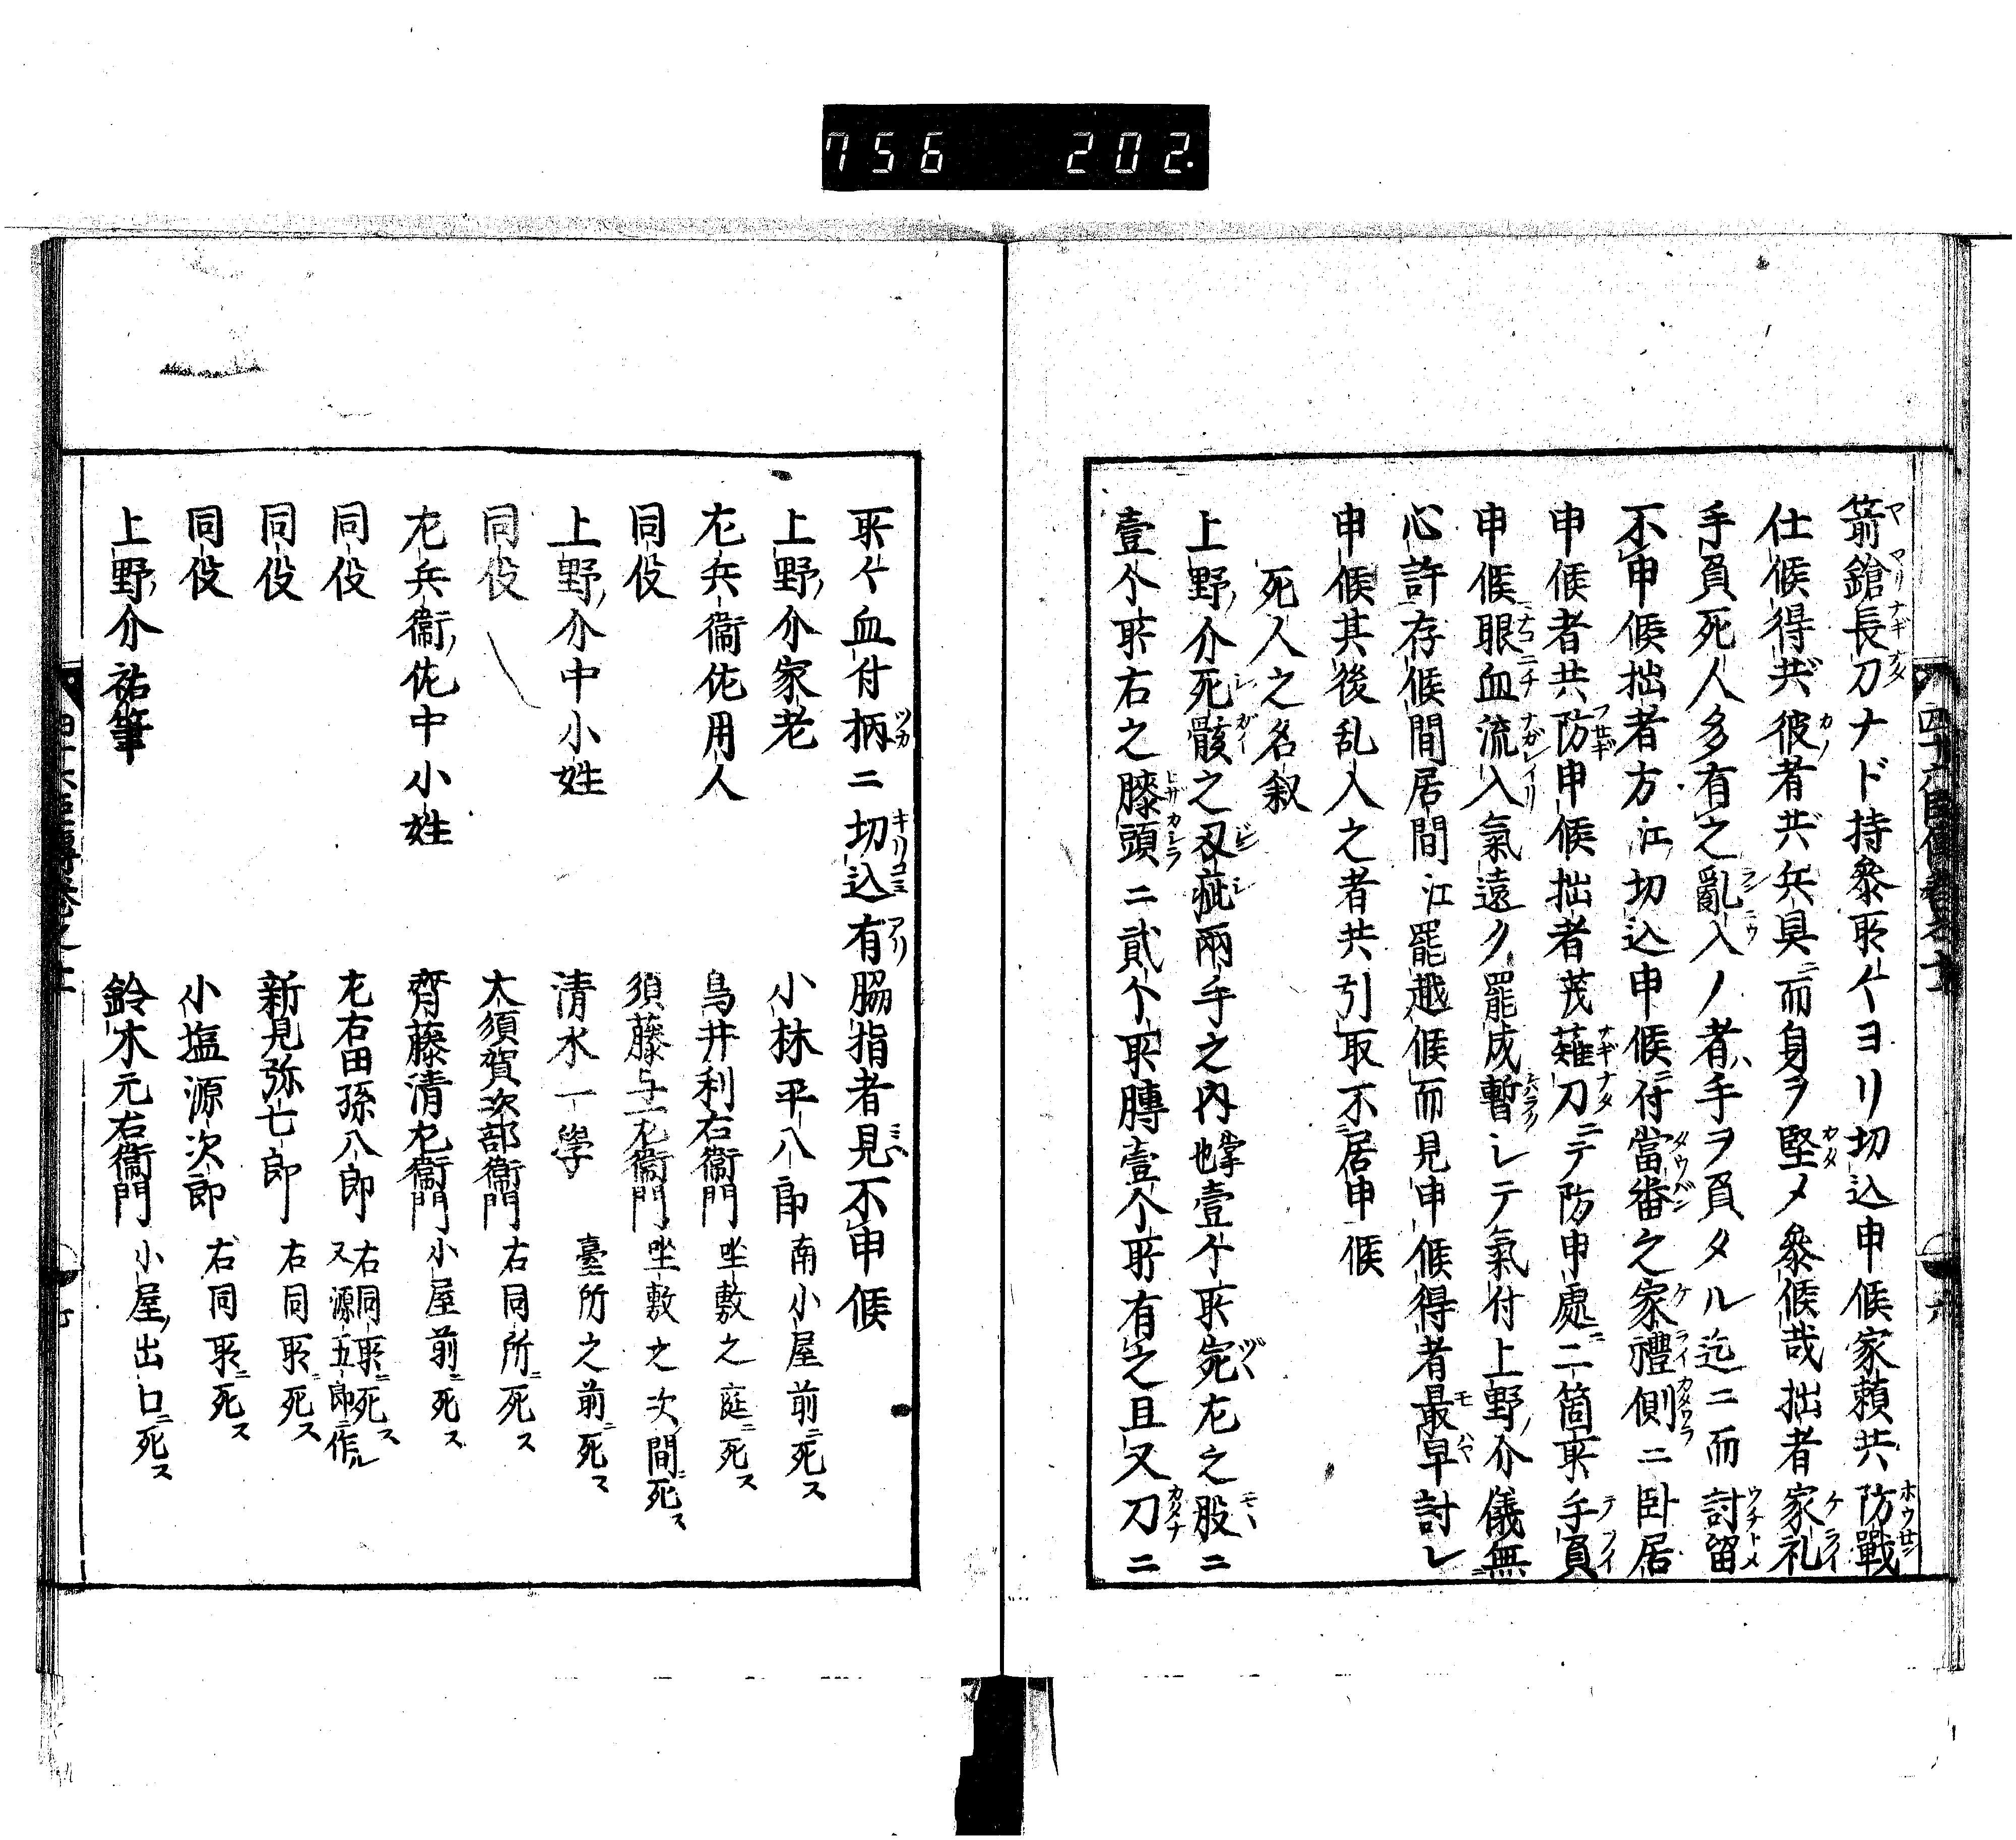 756 202.
箭鎗長刀ナド持參所〻ヨリ切込申候家頼共防戰
仕候得共彼者共兵具ニ而身ヲ堅メ參候哉拙者家礼
手負死人多有之亂入ノ者ハ手ヲ負タル迄ニ而討留
不申候拙者方江切込申候ニ付當番之家禮側ニ卧居
申候者共防申候拙者茂薙刀ニテ防申處ニ二箇所手負
申候眼ニ血流入氣遠ク罷成暫シテ氣付上野ノ介儀無
心許存候間居間江罷越候而見申候得者最早討レ
申候其後乱入之者共引取不居申候
死人之名叙
上野ノ介死骸之刄疵兩手之内掌也壹个所宛尢之股ニ
壹个所右之膝頭ニ貳个所膞壹个所有之且又刀ニ
所〻血付柄ニ切込有脇指者見ヘ不申候
上野ノ介家老 小林平八郎 南小屋前ニ死ス
尢兵衞佐用人 鳥井利右衞門 坐敷之庭ニ死ス
同役 須藤与一尢衞門 坐敷之次ノ間ニ死ス
上野ノ介中小姓 清水一學 臺所之前ニ死ス
同役 大須賀次部衞門 右同所ニ死ス
尢兵衞佐中小姓 齊藤清尢衞門 小屋前ニ死ス
同役 尢右田孫八郎 右同所ニ死ス又源五郎ニ作ル
同役 新見弥七郎 右同所ニ死ス
同役 小塩源次郎 右同所ニ死ス
上野ノ介祐筆 鈴木元右衞門 小屋ノ出口ニ死ス